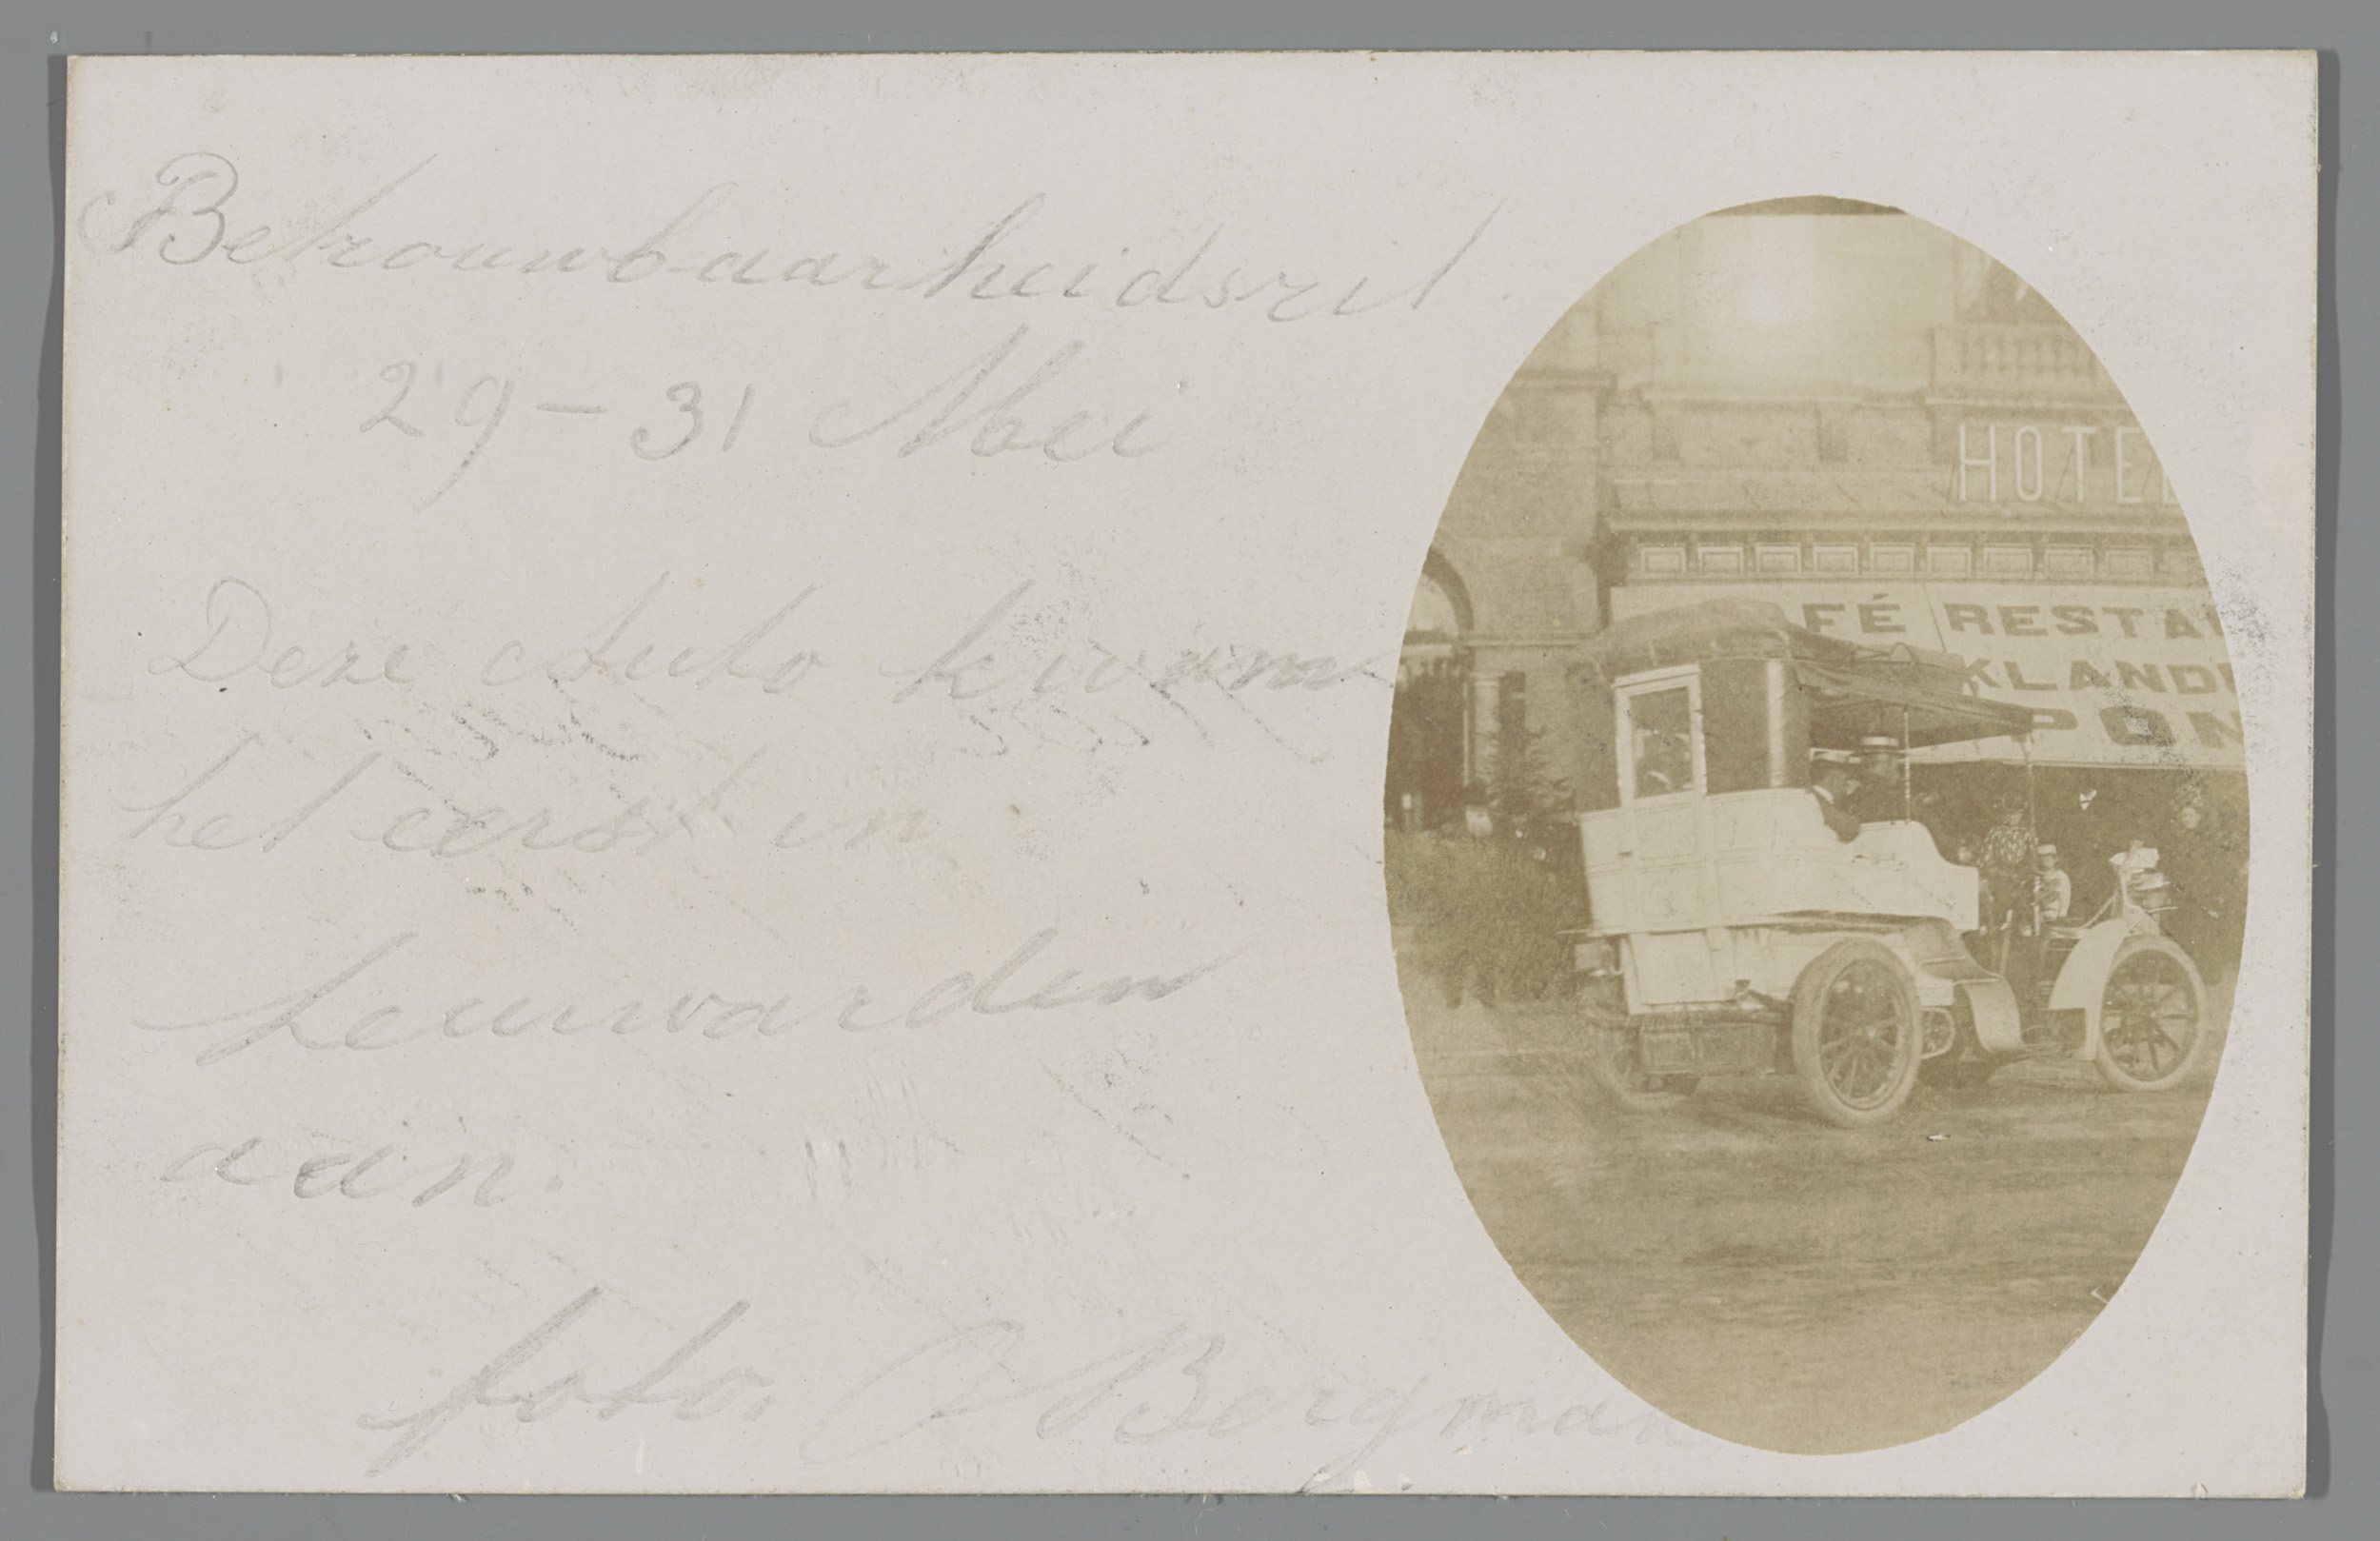 Betrouwbaarheidsrit
29-31 Mei
Deze Auto kwam
het eerst in
Leeuwarden
aan.
foto. Bergman
HOTE
FÉ RESTA
KLAND
PON